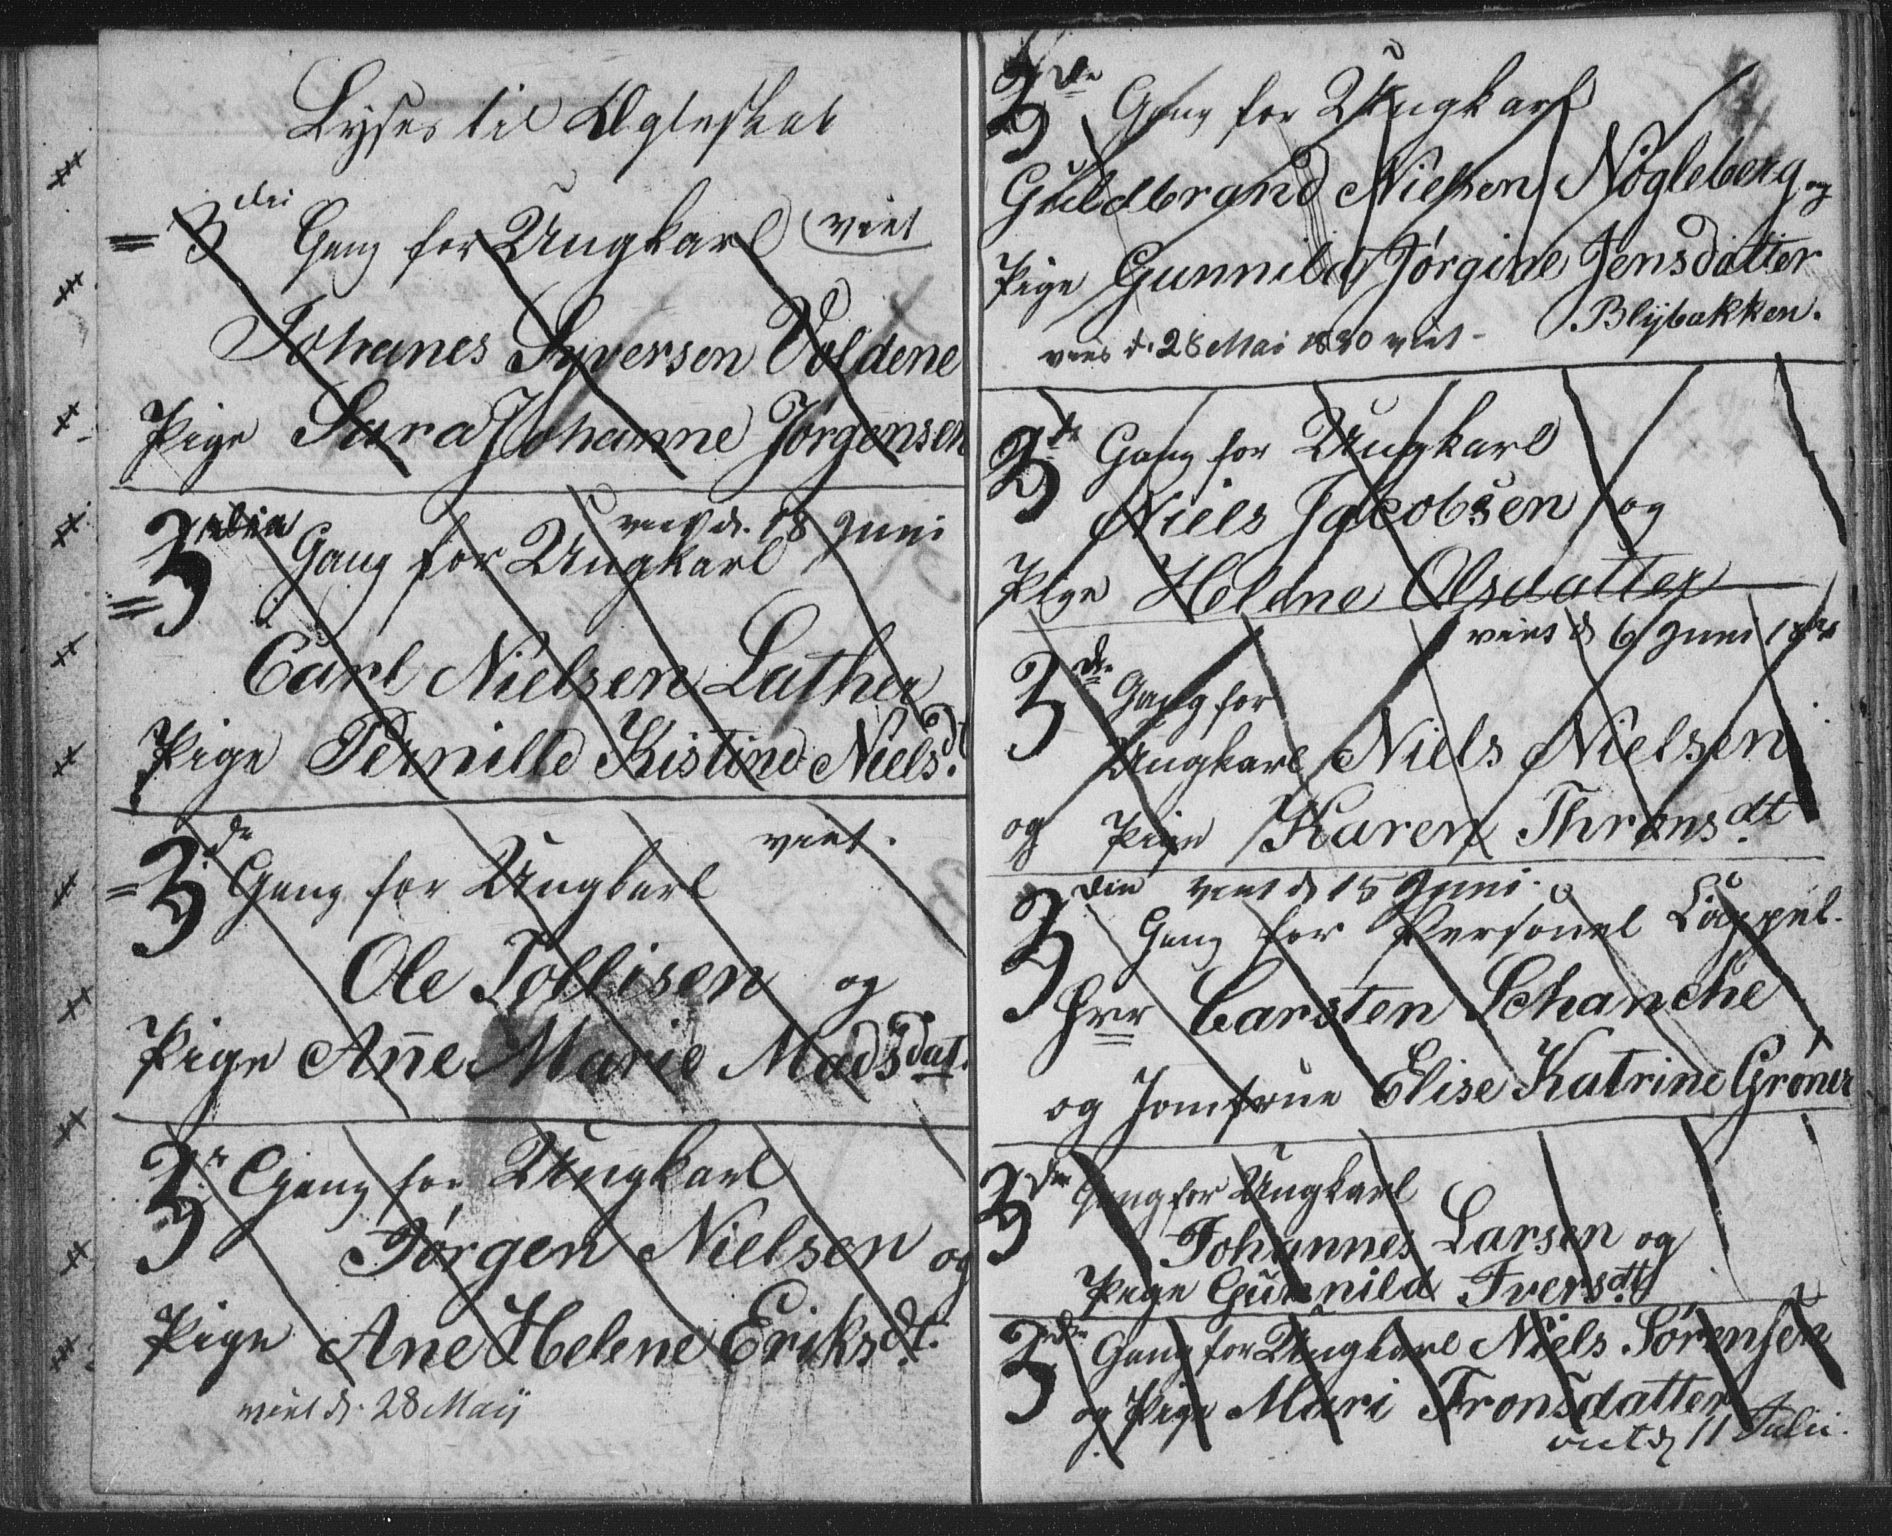 Lyses til Ægteskab
3die Gang for Ungkarl viet
Johanes Syversen Voldene
Pige Sara Johanne Jørgensen
viet d. 18 Juni
3die Gang for Ungkarl
Carl Nielsen Luther
Pige Pernille Kistine Nielsd.
viet.
3de Gang for Ungkarl
Ole Tollisen og
Pige Añe Marie Madsdat.
3de Gang for Ungkarl
Jørgen Nielsen og
Pige Ane Helene Eriksdt.
viet d. 28 Maij
3de Gang for Ungkarl
Guldbrand Nielsen Nøgleberg og
Pige Gunnild Jørgine Jensdatter
Blybakken.
vies d. 28 Mai 1830 viet
3de Gang for Ungkarl
Niels Jacobsen og
Pige Helene Olsdatter
viet d 6 Juni
3de Gang for
Ungkarl Niels Nielsen
og Pige Karen Thronsdt
viet d 15 Juni.
3die Gang for Personel Cappel.
Hrr Carsten Schanche
og Jomfrue Elise Katrine Grøner
3die Gang for Ungkarl
Johannes Larsen og
Pige Gunnild Iversdt
3die Gang for Ungkarl Niels Sørensen
og Pige Mari Tronsdatter
viet d 11 Julii.